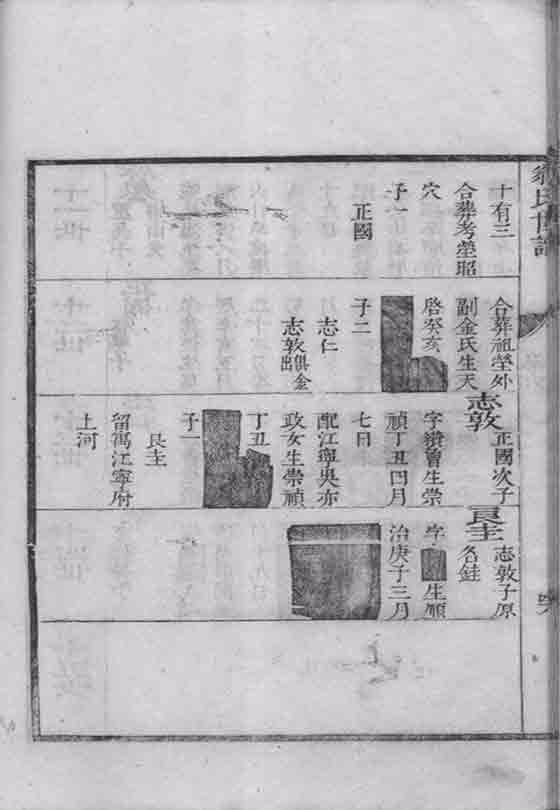 氏世譜
十有三
合葬考塋昭
穴
子一
正國
合葬祖塋外
副金氏生天
啓癸亥
子二
志仁
志敦俱金出
志敦
正國次子
字纘曾生崇
禎丁丑四月
七日
配江寧吳亦
政女生崇禎
丁丑
子一
良圭
留寓江寧府
上河
良圭
志敦子原
名銈
字 生順
治庚子三月